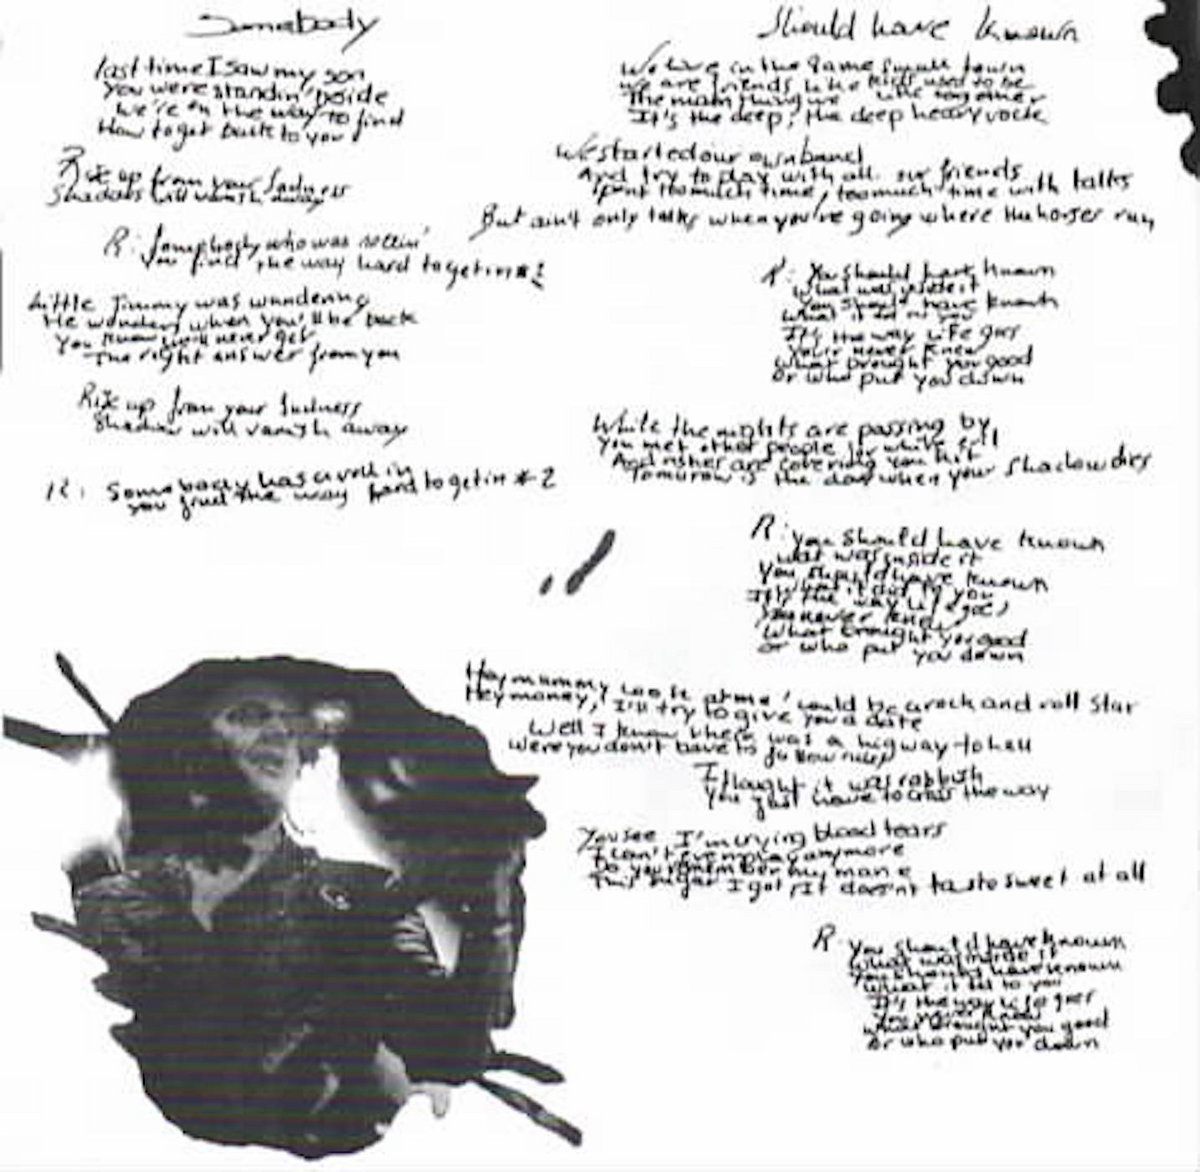 Somebody
last time I saw my son
You were standin' beside
We're on the way to find
How to get back to you
Rise up from your Sadness
Shadows will vanish away
R: Somebody who was rollin'
You find the way hard to get in #2
Little Jimmy was wundering
He wonders when you'll be back
You know we'll never get
The right answer from you
Rise up from your Sadness
Shadow will vanish away
R: Somebody has a roll in
you find the way hard to get in #2
Should have known
We live in the same small town
we are friends like kids used to be
The main thing we like together
It's the deep, the deep heavy rock
We started our own band
And try to play with all our friends
Spent too much time, too much time with talks
But ain't only talks when you're going where the horses run
R: You should have known
What was inside it
You should have known
What it did to you
It's the way life goes
You never knew
What brought you good
or who put you down
While the nights are passing by
You met other people for while
And ashes are covering you
Tomorrow is the day when your shadow dies
R: you should have known
wat was inside it
You should have known
What it did to you
It's the way life goes
You never knew
What brought you good
or who put you down
Hey mummy look at me I could be a rock and roll star
Hey money, I'll try to give you a date
Well I know there was a higway to hell
Were you don't have to follow rules
I thought it was rabbish
You just have to cross the way
You see I'm crying blood tears
I can't even play anymore
Do you remember my man
This sugar I got, it doesn't taste sweet at all
R: You should have known
What was inside it
You should have known
What it did to you
It's the way life goes
You never knew
What brought you good
or who put you down